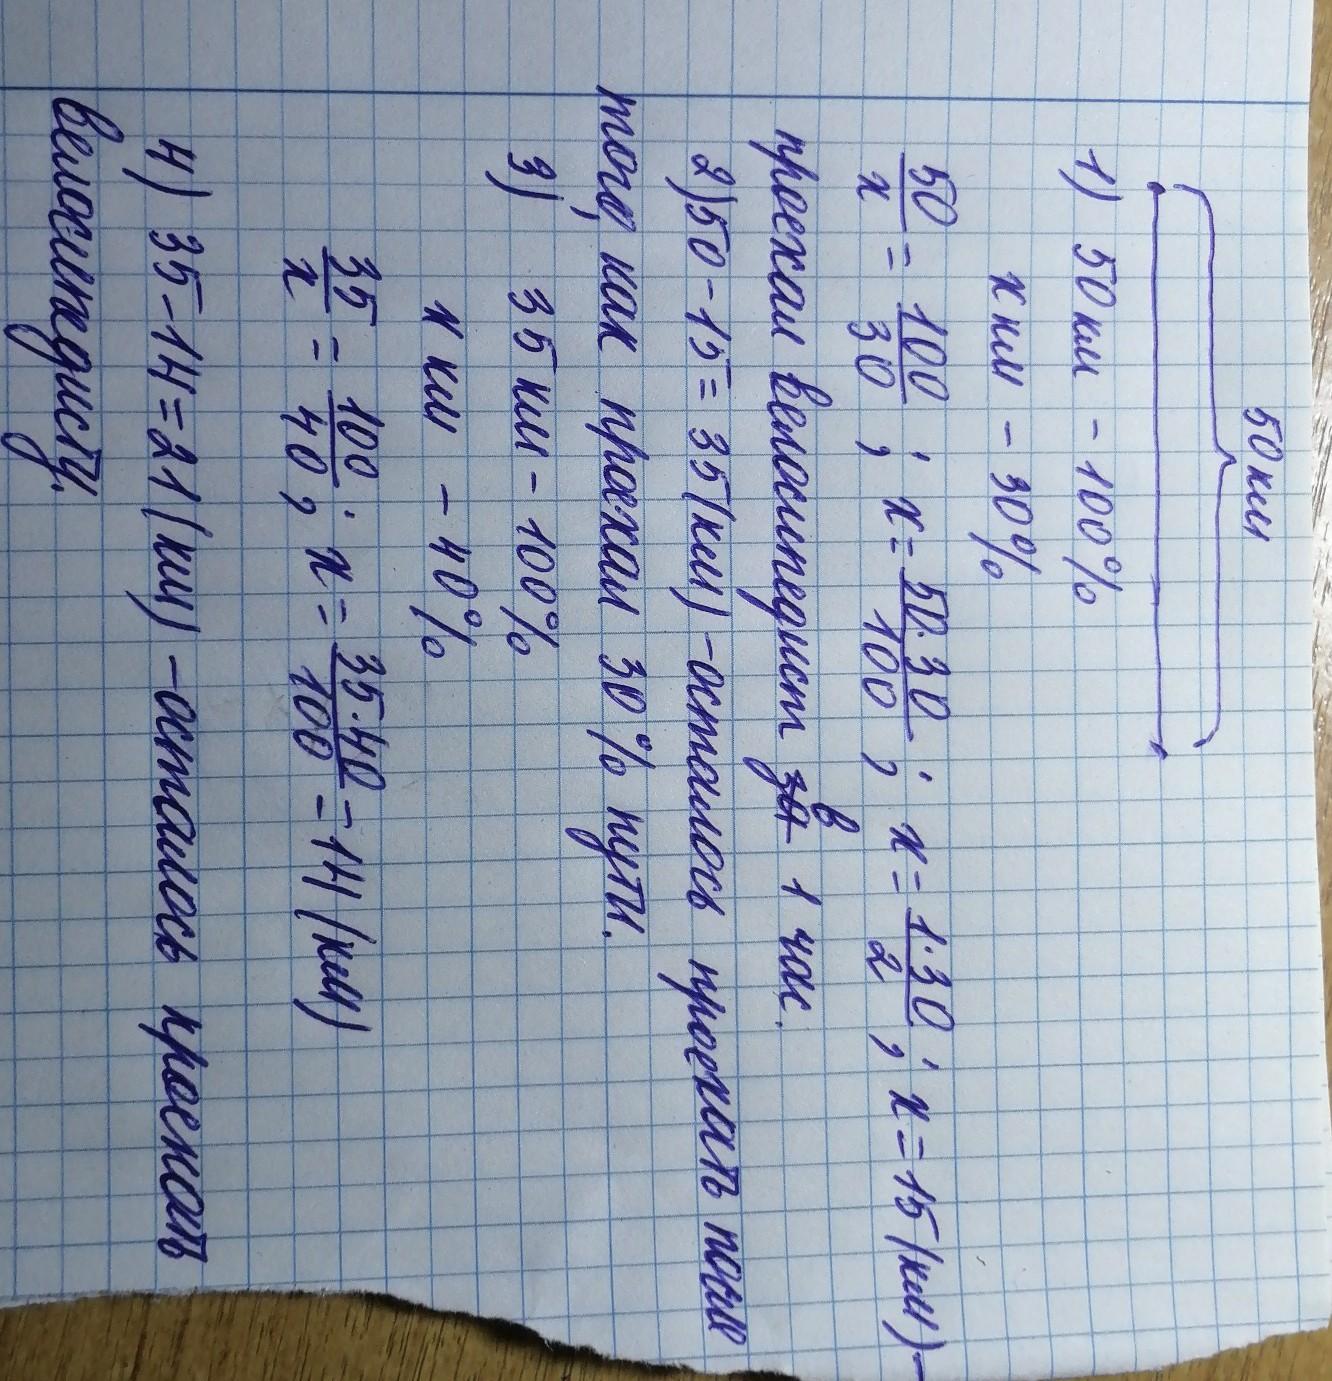 50 км
1) 50 км - 100%
х км - 30%
50/х = 100/30 ; х = 50·30/100 ; х = 1·30/2 ; х = 15 (км) -
проехал велосипедист за в 1 час.
2) 50 - 15 = 35 (км) - осталось проехать после
того, как проехал 30% пути.
3) 35 км - 100%
х км - 40%
35/х = 100/40 ; х = 35·40/100 = 14 (км)
4) 35 - 14 = 21 (км) - осталось проехать
велосипедисту.